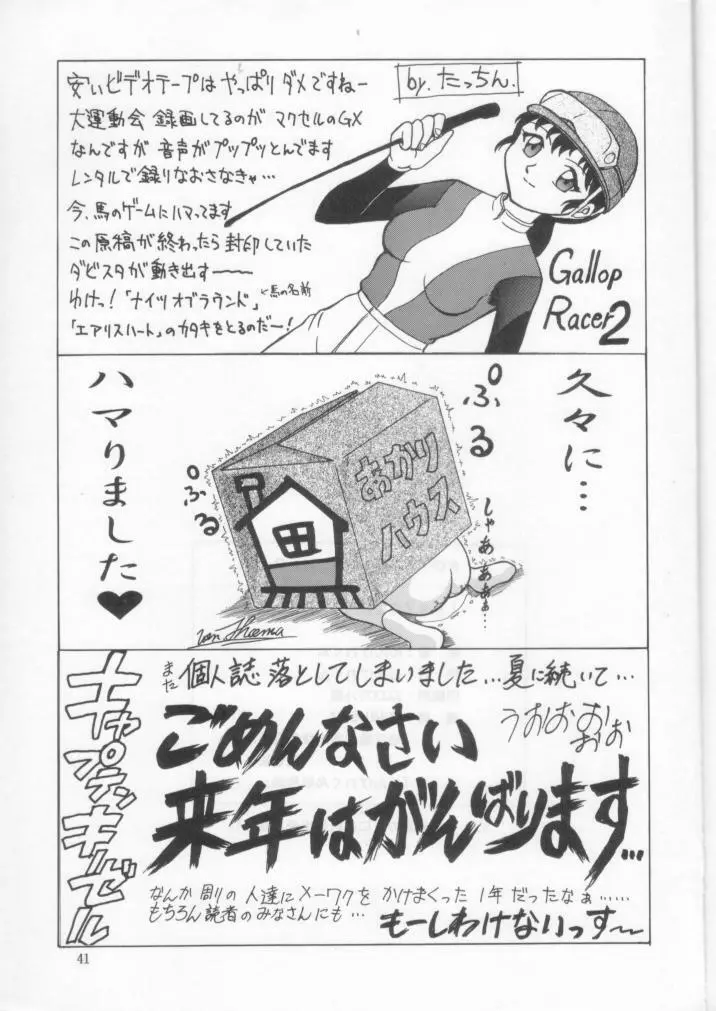 安いビデオテープはやっぱりダメですねー
大運動会 録画してるのがマクセルのGX
なんですが 音声がプップッとんでます
レンタルで録りなおさなきゃ…
今、馬のゲームにハマってます
この原稿が終わったら封印していた
ダビスタが動き出す〜〜〜
ゆけっ!「ナイツオブラウンド」
と馬の名前
「エアリスハート」のカタキをとるのだー!
by. たっちん.
Gallop
Racer 2
久々に…
ハマりました♥
ぷる
ぷる
あかり
ハウス
しゃあぁぁぁ…
また 個人誌 落としてしまいました…夏に続いて…
ごめんなさい
うおおお
おお
来年はがんばります…
キャプテンキルゼル
なんか 周りの 人達に メーワクを かけまくった 1年 だったなぁ……
もちろん 読者の みなさんにも…
もーしわけないっす〜
41